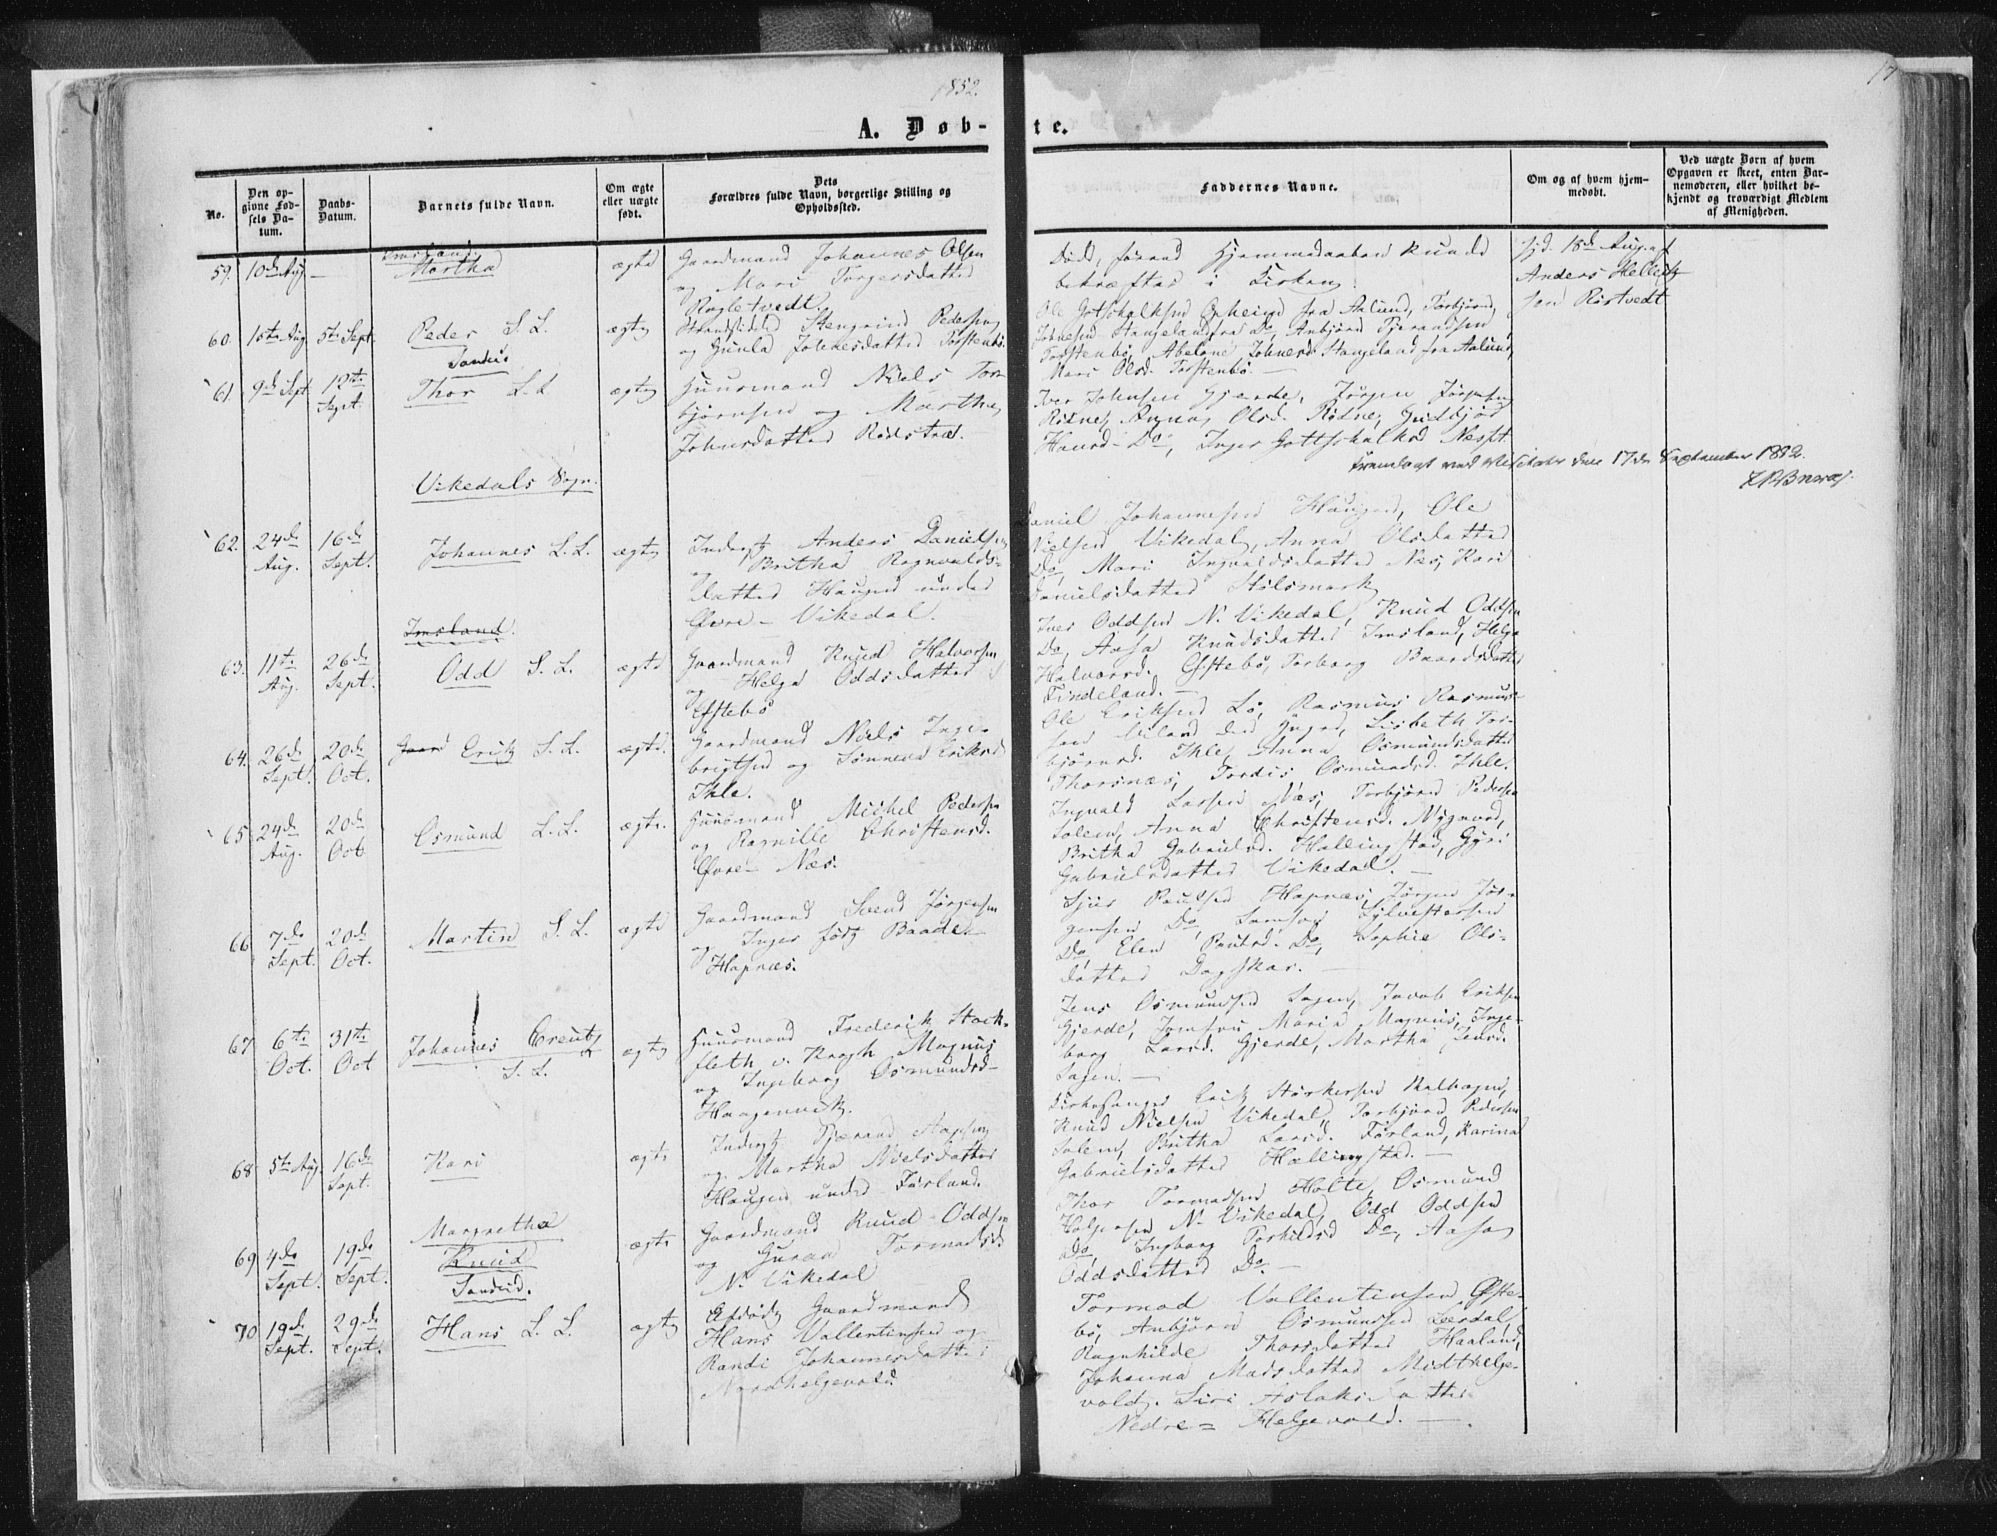 1852.
17
A. Døb-te.
No.
Den opgivne Fødsels Datum.
Daabs-Datum.
Barnets fulde Navn.
Om ægte eller uægte født.
Dets Forældres fulde Navn, borgerlige Stilling og Opholdssted.
Faddernes Navne.
Om og af hvem hjemmedøbt.
Ved uægte Børn af hvem Opgaven er skeet, enten Barnemoderen, eller hvilket bekjendt og troværdigt Medlem af Menigheden.
Imsland.
59. 10de Aug. — Martha ægte
Gaardmand Johannes Olsen
og Mari Torgersdatter
Død, førend Hjemmedaaben kunde
bekræftes i Kirken.
hjd. 15de Aug. af
Anders Hellich
sen Röstvedt
60. 15de Aug. 5te Sept. Peder S. L. ægte
Pedersen
og Gunla Johnesdatter Torstenbö
Ole Gotschalksen fra Aalund, Torbjörn
Johnesen Stangeland fra Do, Anbjörn Tjerandsen
Torstenbö, Abelone Johnesd. Stangeland fra Aalund,
Mari Olsd. Torstenbö. —
Sandeid
61. 9de Sept. 12te Sept. Thor L. L. ægte
Huusmand Niels Tor-
björnsen og Martha
Johnsdatter Rödstræ.
Iver Johnsen Gjerde, Jörgen Jörgensen
Rödne, Anna Olsd. Rödne,
Hansd. Do, Inger Gottschalksd. Nesset
Fremlagt ved Visitats den 17de September 1852.
Vikedals Sogn.
62. 24de Aug. 16de Sept. Johannes L. L. ægte
Inderst Anders Danielsen
og Britha Rognvalds-
datter Haugen under
Øvre-Vikedal.
Daniel Johannesen Haugen, Ole
Nielsen Vikedal, Anna Olsdatter
Do, Mari Ingvaldsdatter Næs, Kari
Danielsdatter Stölsmark
Imsland.
63. 11te Aug. 26de Sept. Odd S. L. ægte
Gaardmand Knud Halvorsen
og Helga Oddsdatter
Øfstebö
Iver Oddsen N. Vikedal, Knud Oddsen
Do, Aasa Knudsdatter Imsland, Helga
Halvorsd. Øfstebö, Torborg Baardsdatter
Tindeland. —
64. 26de Sept. 20de Oct. Gaard Erik S. L. ægte.
Gaardmand Niels Inge-
brigtsen og Sönneva Eriksd.
Ihle.
Ole Eriksen Lö, Rasmus Rasmus-
sen Lisbeth Tor-
björnsd. Ihle, Anna Osmundsdatter
Thorsnæs, Tordis Osmundsd. Ihle.
65. 24de Aug. 20de Oct. Osmund L. L. ægte.
Huusmand Michel Pedersen
og Ragnille Christensd.
Øvre-Næs.
Ingvald Larsen Næs, Torbjörn Pedersen
Solem, Anna Christensd. Nygaard,
Britha Gabrielsd. Hallingstad, Gyri
Gabrielsdatter Vikedal. —
66. 7de Sept. 20de Oct. Martin S. L. ægte
Gaardmand Svend Jörgensen
og Inger född Baade
Hapnæs.
Sjur Poulsen Hapnæs, Jörgen Jör-
gensen Do, Samson Sylvestersen
Do, Elen Poulsd. Do, Sophie Ols-
datter Dagskar. —
67. 6te Oct. 31te Oct Johannes Creutz S. L. ægte
Huusmand Frederik Stock-
fleth v. Krogh Magnus
og Ingeborg Osmundsd.
Haagenvik.
Jens Osmundsen Sagen, Jacob Eriksen
Gjerde, Jomfru Maria Magnus, Inge-
borg Larsd. Gjerde, Martha Jensd.
Sagen. —
68. 5te Aug. 16de Sept. Kari ægte
Inderst Tjærand
og Martha Nielsdatter
Haugen under Förland.
Kirkesanger Erik Störkersen
Knud Nielsen Vikedal, Torbjörn Pedersen
Solem, Britha Larsd. Förland, Karina
Gabrielsdatter Hallingstad. —
69. 4de Sept. 19de Sept. Margretha Knud ægte
Gaardmand Knud Oddsen
og Guroa Tormodsd.
N. Vikedal
Thor Tormodsen Holte, Osmund
Holgersen N. Vikedal, Odd Oddsen
Do, Ingborg Torkildsd Do, Aasa
Oddsdatter Do. —
Sandeid.
70. 19de Sept. 29de Sept. Hans L. L. ægte
Afdöd Gaardmand
Hans Vallentinsen og
Randi Johannesdatter
Nordhelgevold
Tormod Vallentinsen Øfste-
bö, Anbjörn Osmundsen Leerdal,
Ragnhilde Thorsdatter Haaland,
Johanna Madsdatter Midthelge-
vold, Siri Aslaksdatter
Nedre-Helgevold. —